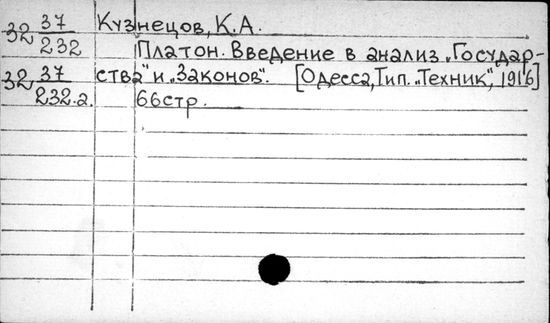 32 37/232 Кузнецов, К.А.
Платон. Введение в анализ „Государ-
32 37/232.а. ства" и „Законов". [Одесса, Тип. „Техник", 1916]
66стр.